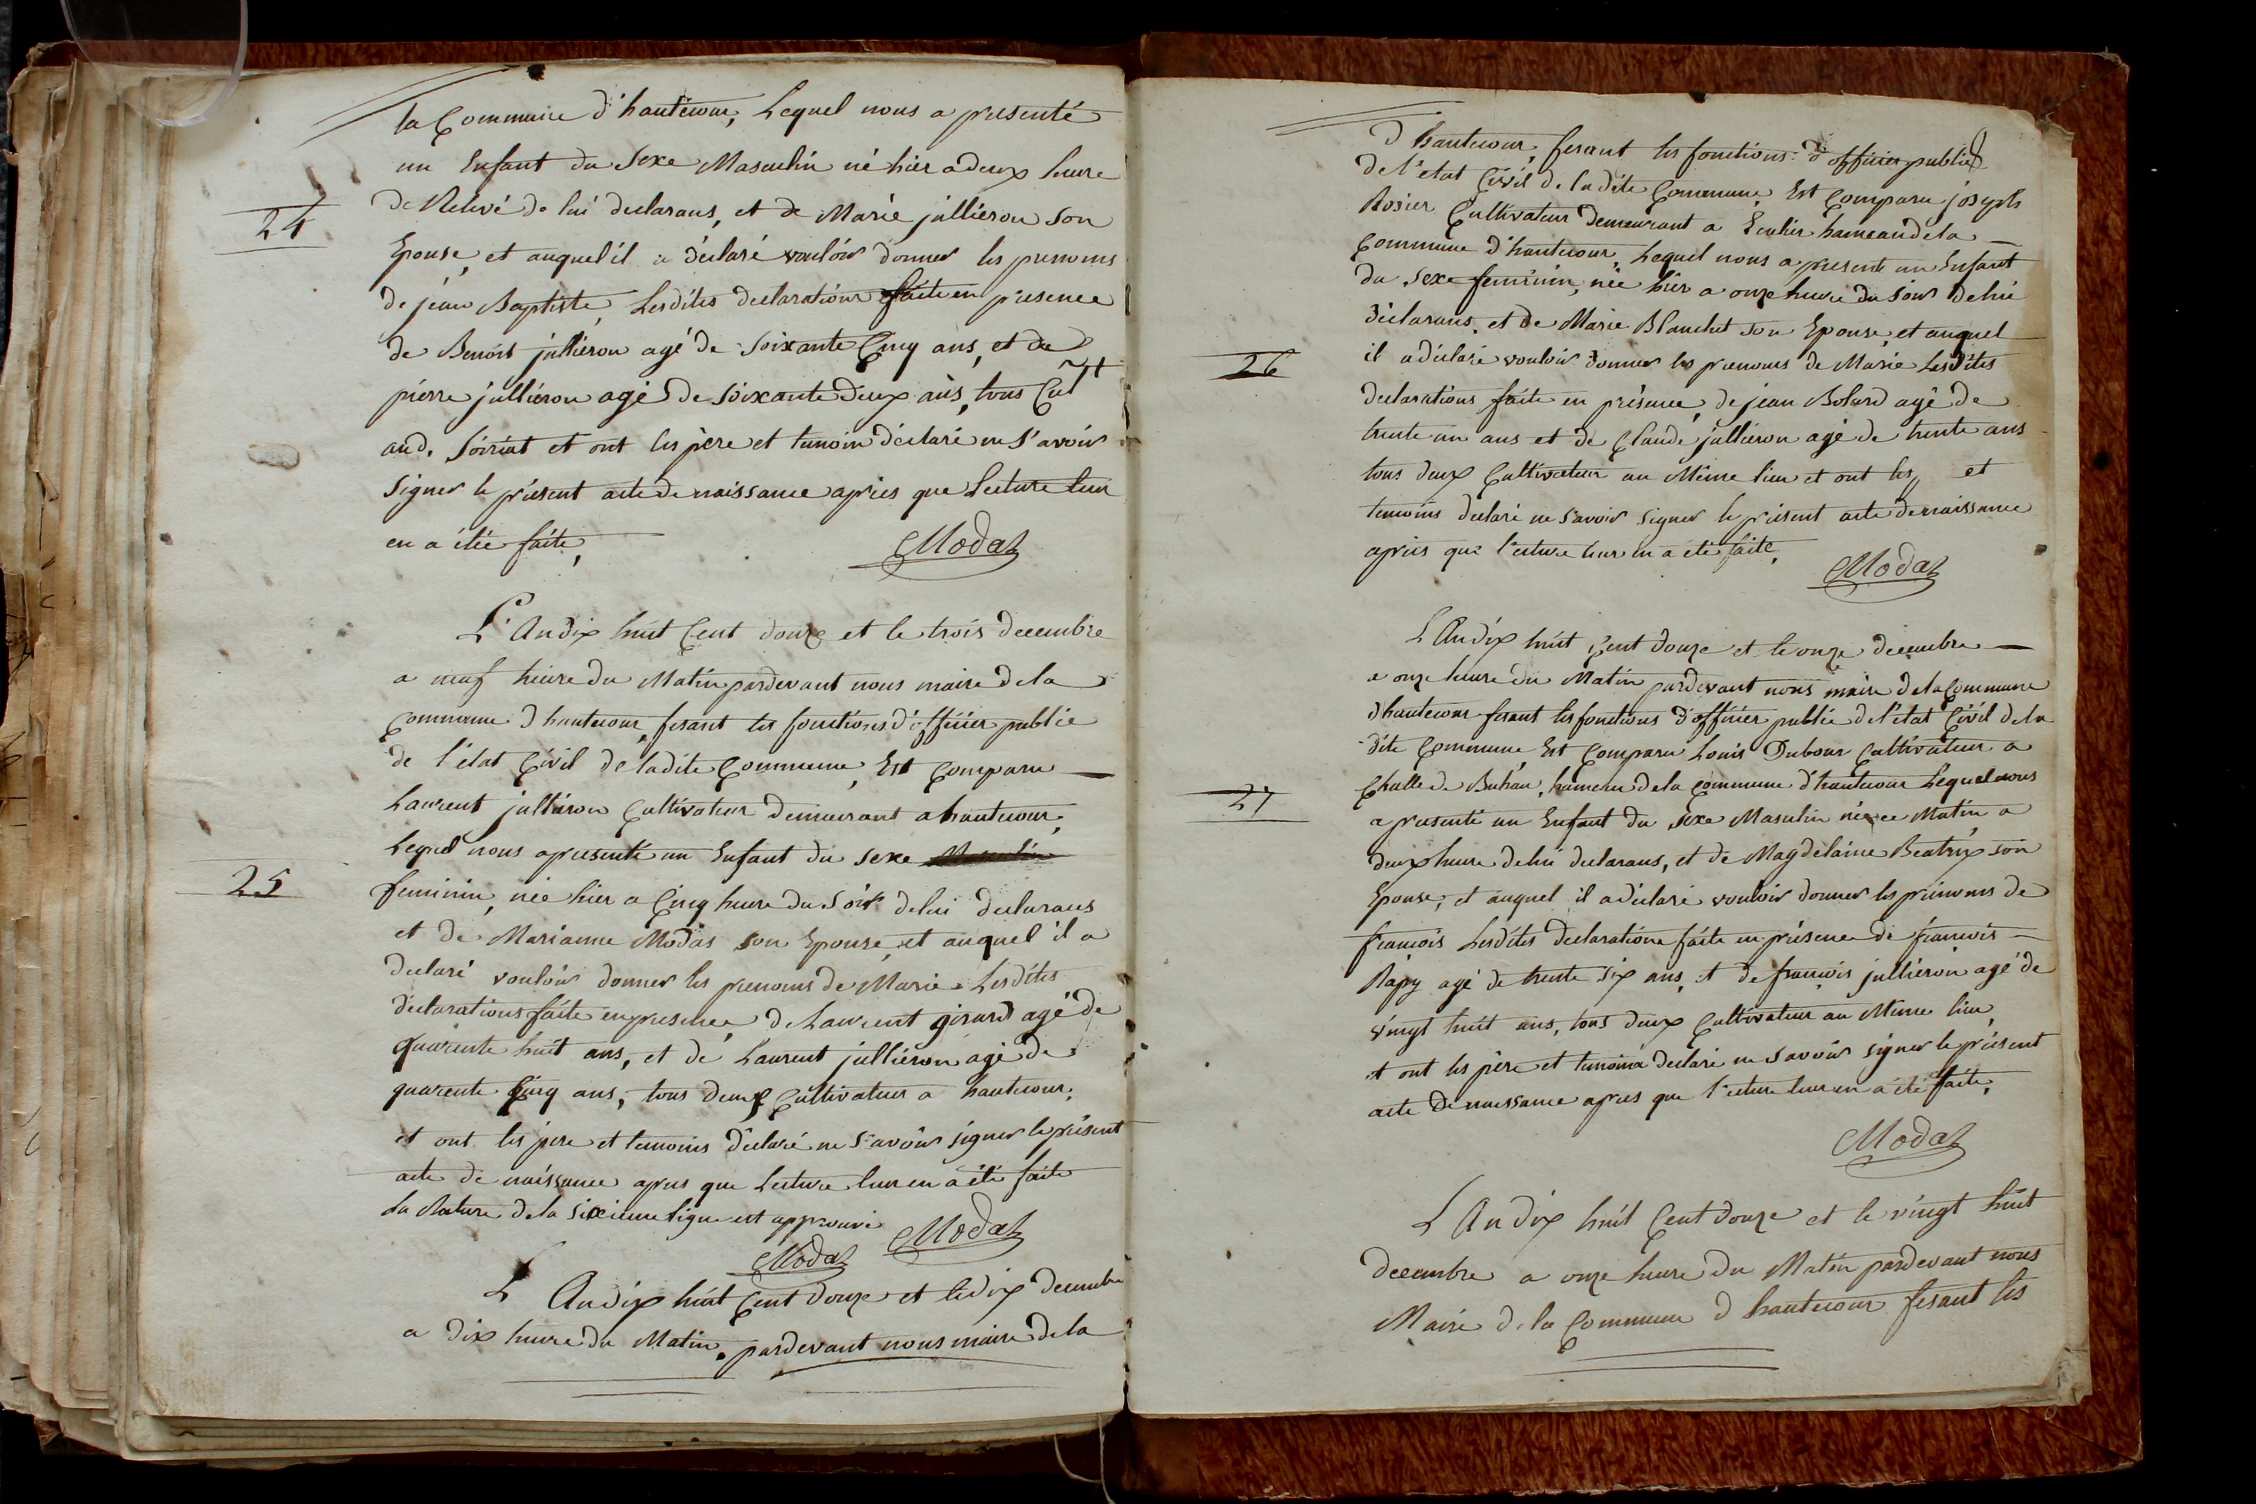 la Commune d'hautecour, Lequel nous a presenté
un Enfant du Sexe Masculin né hier a deux heure
de Relevé de lui declarans, et de Marie jullieron Son
24
Epouse, et auquel il a déclaré vouloir donner les prenoms
de jéan Baptiste, Lesdites declarations faite en presence
de Benoit jullieron agé de Soixante Cinq ans, et de
pierre jullieron agé de Soixante deux ans, tous Cult
aud. Soiriat et ont les pere et temoin declaré ne Savoir
Signer le présent acte de naissance apries que Lecture leur
en a étée faite,
Modas
L'An dix huit Cent douze et le trois decembre
a neuf heure du Matin pardevant nous maire de la
Commune d hautecour, fesant les fonctions d'officier public
de l'état Civil de ladite Commune, Est Comparu
Laurent jullieron Cultivateur demeurant a hautecour,
Lequel nous apresenté un Enfant du Sexe Masculin
25
feminin, née hier a Cinq heure du Soir de lui declarans
et de Marianne Modas son Epouse, et auquel il a
declaré vouloir donner les prenoms de Marie Lesdites
declarations faite en presence de Laurent girard agé de
quarente huit ans, et de Laurent jullieron agé de
quarente Cinq ans, tous deux Cultivateur a hautecour,
et ont les pere et temoins déclaré ne Savoir signer le présent
acte de naissance apres que Lecture leur en a été faite
La Rature de la Sixieme ligne est approuvé
Modas
Modas
L'An dix huit Cent douze et le dix decembre
a dix heure du Matin, pardevant nous maire de la
d hautecour, fesant les fonctions d officier public
de l'etat Civil de la dite Commune, Est Comparu joseph
Rosier Cultivateur demeurant a hameau de la
Commune d'hautecour, Lequel nous a presente un Enfant
du Sexe feminin, née hier a onze heure du Soir de lui
déclarans, et de Marie Blanchet son Epouse, et auquel
26
il a déclaré vouloir donner les prenoms de Marie Lesdites
declarations faite en présence, de jean Bolard agé de
trente un ans et de Claude jullieron agé de trente ans
tous deux Cultivateur au Même lieu et ont les et
temoins declaré ne Savoir Signer le présent acte de naissance
apriès que lecture leur en a été faite,
Modas
L'An dix huit Cent douze et le onze decembre
a onze heure du Matin pardevant nous maire de la Commune
d hautecour fesant les fonctions d'officier public de l'état Civil de la
dite Commune, Est Comparu Louis Dubour Cultivateur a
27
Challe de hameau de la Commune d'hautecour Lequel nous
a presenté un Enfant du Sexe Masculin né ce Matin a
deux heure de lui declarans, et de Magdelaine Beatrix son
Epouse, et auquel il a déclaré vouloir donner les prénoms de
francois Lesdites declarations faite en présence de francois
Rapy agé de trente six ans, et de francois jullieron agé de
vingt huit ans, tous deux Cultivateur au Même lieu
et ont les père et temoins declaré ne Savoir signer le présent
acte de naissance apres que lecture leur en a été faite,
Modas
L'An dix huit Cent douze et le vingt huit
decembre a onze heure du Matin pardevant nous
Maire de la Commune d hautecour fesant les